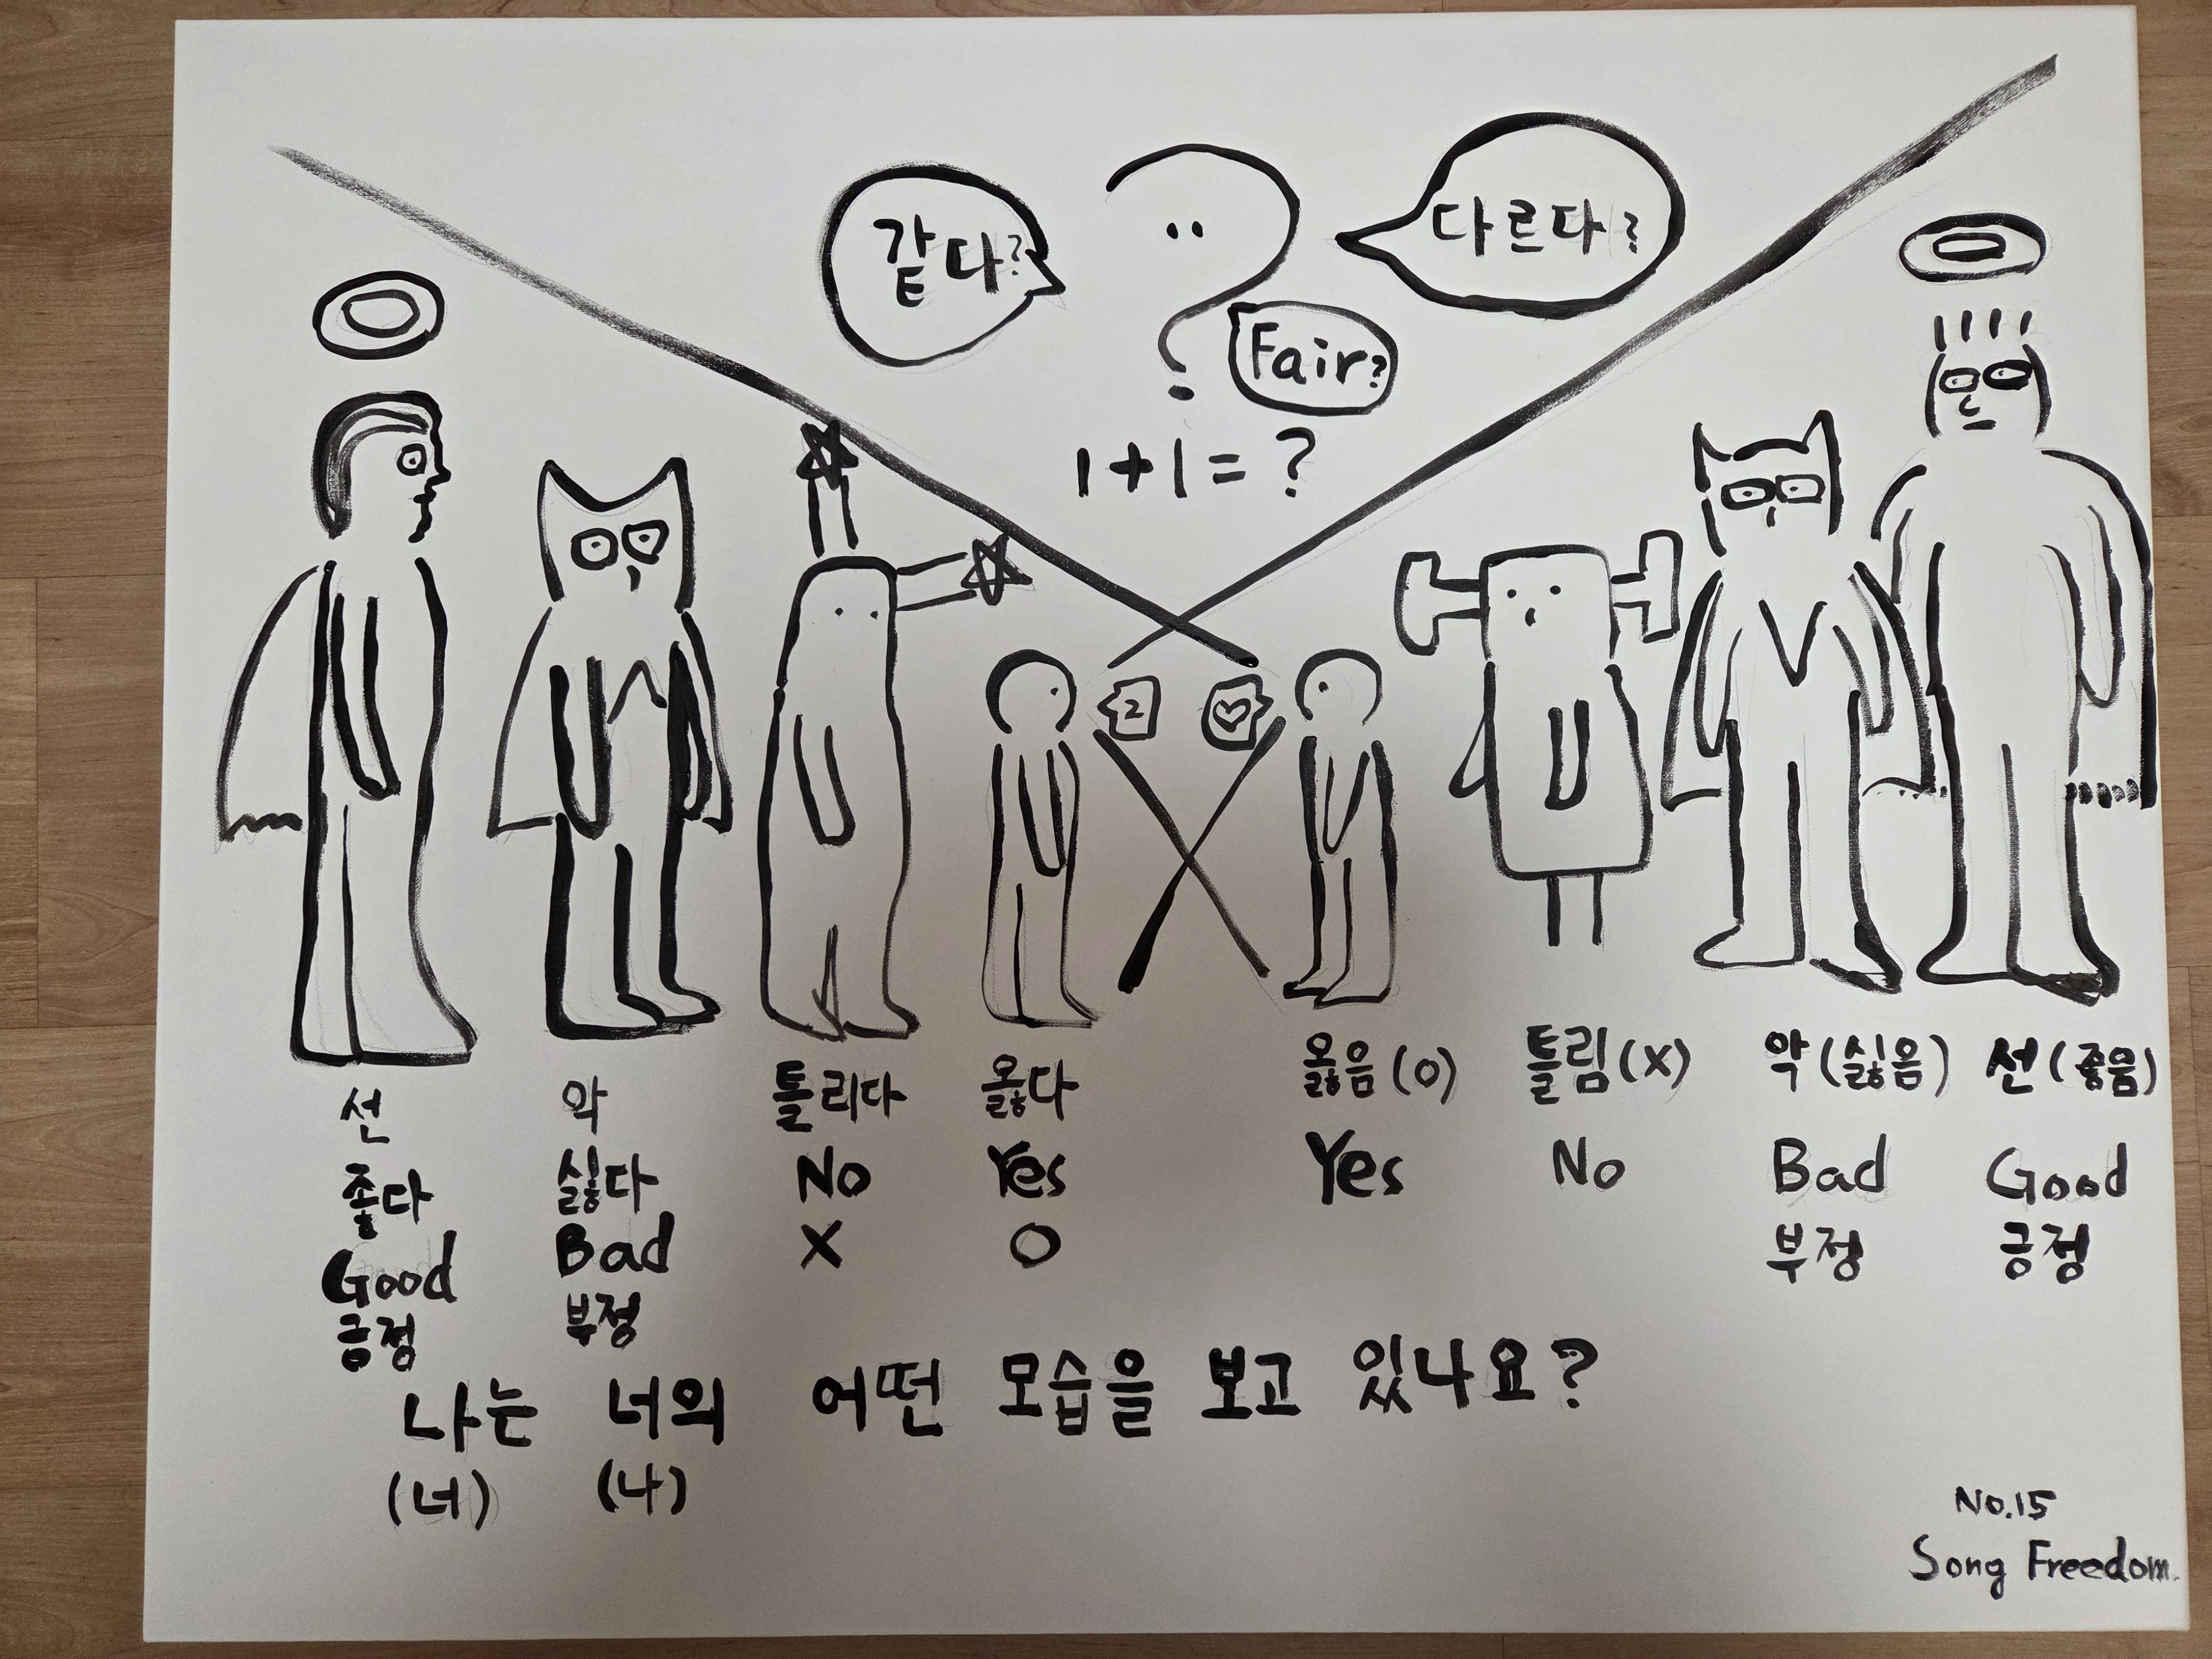 같다?
다르다?
Fair?
1+1=?
2
선
좋다
Good
긍정
악
싫다
Bad
부정
틀리다
No
X
옳다
Yes
O
옳음(O)
Yes
틀림(X)
No
악(싫음)
Bad
부정
선(좋음)
Good
긍정
나는 너의 어떤 모습을 보고 있나요?
(너) (나)
No.15
Song Freedom.